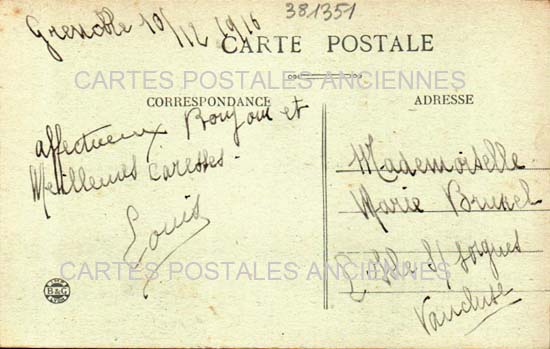 381351
Grenoble 10/12 1916
CARTE POSTALE
CARTES POSTALES ANCIENNES
CORRESPONDANCE
ADRESSE
affectueux Bonjour et
Meilleures Caresses.
Louis
Mademoiselle
Marie Brunel
L'Isle S/ Sorgues
Vaucluse
CARTES POSTALES ANCIENNES
B&G